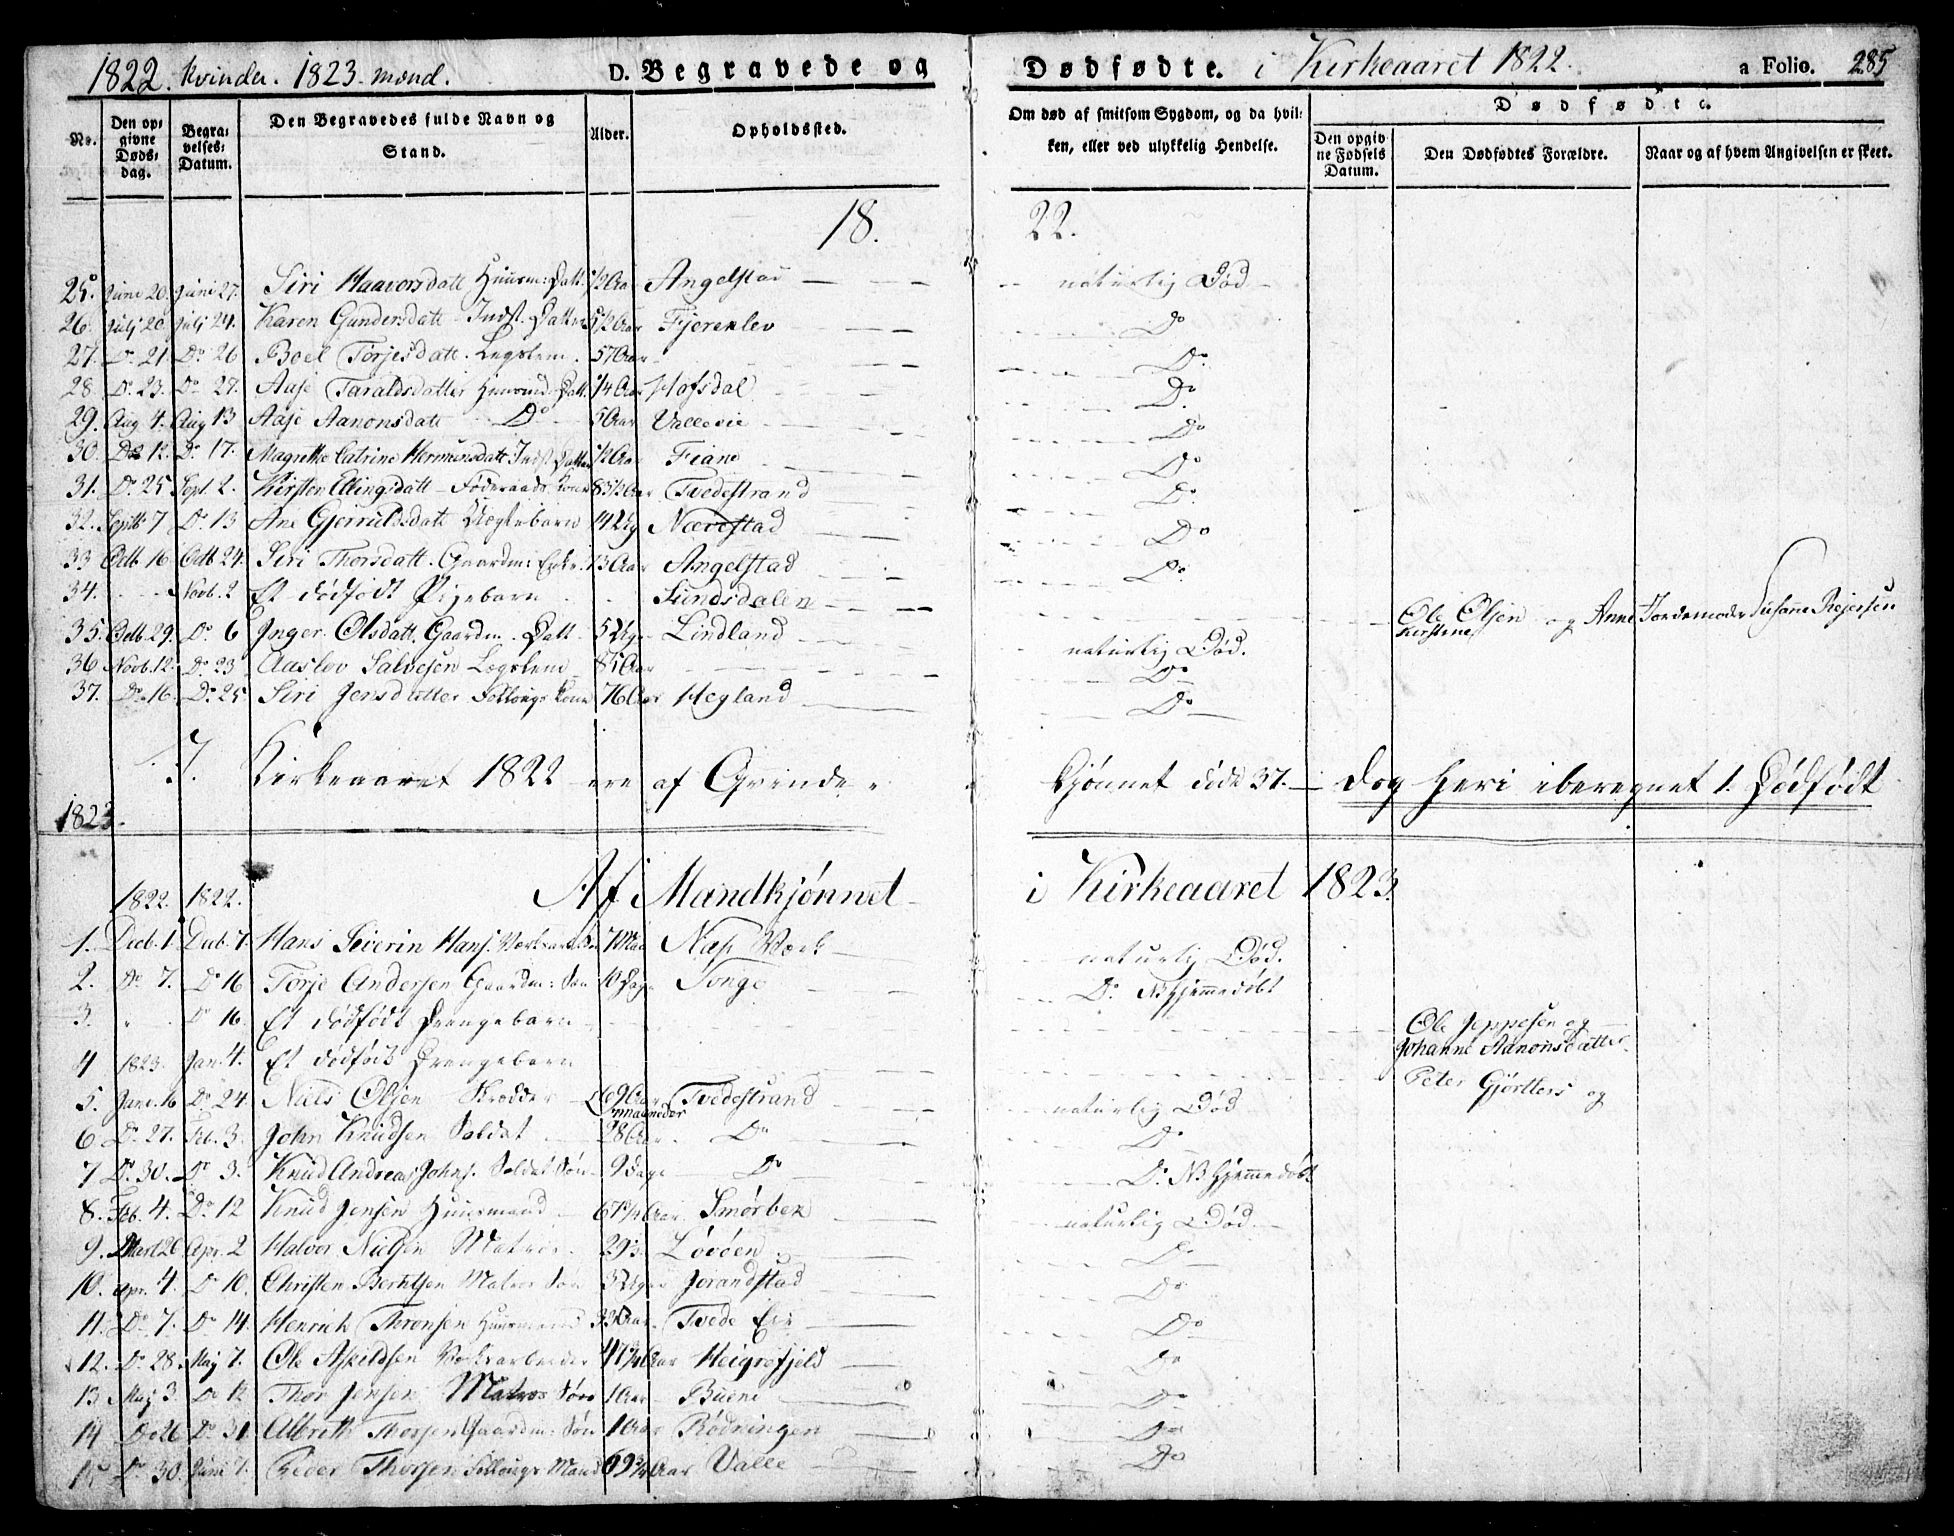 1822. kvinder. 1823. mænd. D. Begravede og Dødfødte. i Kirkeaaret 1822. a Folio. 285
No. Den opgivne Døds-dag. Begravelses-Datum. Den Begravedes fulde Navn og Stand. Alder. Opholdssted. Om død af smitsom Sygdom, og da hvilken, eller ved ulykkelig Hendelse. Dødfødte. Den opgivne Fødsels Datum. Den Dødfødtes Forældre. Naar og af hvem Angivelsen er skeet.
18. 22.
25. Juni 20. Juni 27. Siri Haavorsdatt Huusm: Datt. 1/2 Aar Angelstad naturlig Død
26. Julj 20. Julj 24. Karen Gundersdatt Indst. Datter 5 1/2 Aar Fjerenlev Do
27. Do 21. Do 26 Boel Torjesdatt. Legslem. 57 Aar Do
28 Do 23. Do 27. Aase Taraldsdatter Huusmd. Datt. 1/4 Aar Hofsdal Do
29. Aug 4. Aug 13 Aase Aanonsdatt Do 5 Aar Vallevie Do
30. Do 12. Do 17. Magrethe Catrine Hermunsdatt Indst Datter 1/2 Aar Fiane Do
31. Do 25 Sept. 2. Kirsten Ellingsdatt Føderaads Kone 83 1/2 Aar Tvedestrand Do
32. Septb 7 Do 13 Ane Gjerruldsdatt Uægtebarn 14 Ug Nærestad Do
33 Octb. 16 Octb 24. Siri Thorsdatt. Gaardm: Enke. 73 Aar Angelstad Do
34. Novb. 2 Et dødfødt Pigebarn Sundsdalen Ole Olsen og Anne Kirstine Jordemoder Susanne Rejersen
35. Octb. 29. Do 6 Inger Olsdatt. Gaardm. Datt. 5 Uger Lindland naturlig Død.
36 Novb. 12. Do 23 Aaslov Salvesen Legslem 85 Aar Do
37. Do 16. Do 25 Siri Jensdatter Sellvigs Kone 76 Aar Hegland Do
I Kirkeaaret 1822 ere af Qvinde- Kjønnet døde 37. dog heri iberegnet 1. Dødfødt
1823.
1822. 1822. Af Mandkjønnet i Kirkeaaret 1823.
1. Decb. 1. Decb. 7. Hans Seierin Hans. 7 Maa Næs Værk naturlig Død.
2. Do 7. Do 16 Torje Andersen Gaardm: Søn 10 Dage Songe Do NB hjemmedøbt
3. " Do 16. Et dødfødt Drengebarn Ole Jeppesen og Johanne Aanonsdatter
4 1823. Jan. 4. Et dødfødt Drengebarn Peter Gjørtlers og
5. Janu. 16 Do 24. Niels Olsen Skrædder 69 Aar maaneder Tvedestrand naturlig Død
6 Do 27. Feb. 3. John Knudsen Soldat 28 Aar. Do Do
7 Do 30. Do 3. Knud Andreas Johns. Soldat Søn 9 dage Do Do NB hjemmedøbt
8. Feb. 4. Do 12 Knud Jensen Huusmand 67 3/4 Aar Smørbek naturlig Død
9. Mart 26 Apr. 2 Halvor Nielsen Matros 29 Løvøen Do
10. Apr. 4. Do 10. Christen Berntsen Matros Søn 3 Uger Jorandstad Do
11. Do 7. Do 14. Henrich Thronsen Huusmand 33 Aar Tvede Eie Do
12. Do 28. Maj 7. Ole Askildsen Værksarbeider 47 3/4 Aar Heigrefjeld Do
13 Maj 3. Do 12 Thor Jensen Matros Søn 1 Aar Buene Do
14 Do 26 Do 31. Albreth Thorsen Gaardm: Søn 1 Aar Rødningen Do
15 Do 30. Juni 7. Peder Thorsen Sellvigs Mand 69 3/4 Aar Valle Do